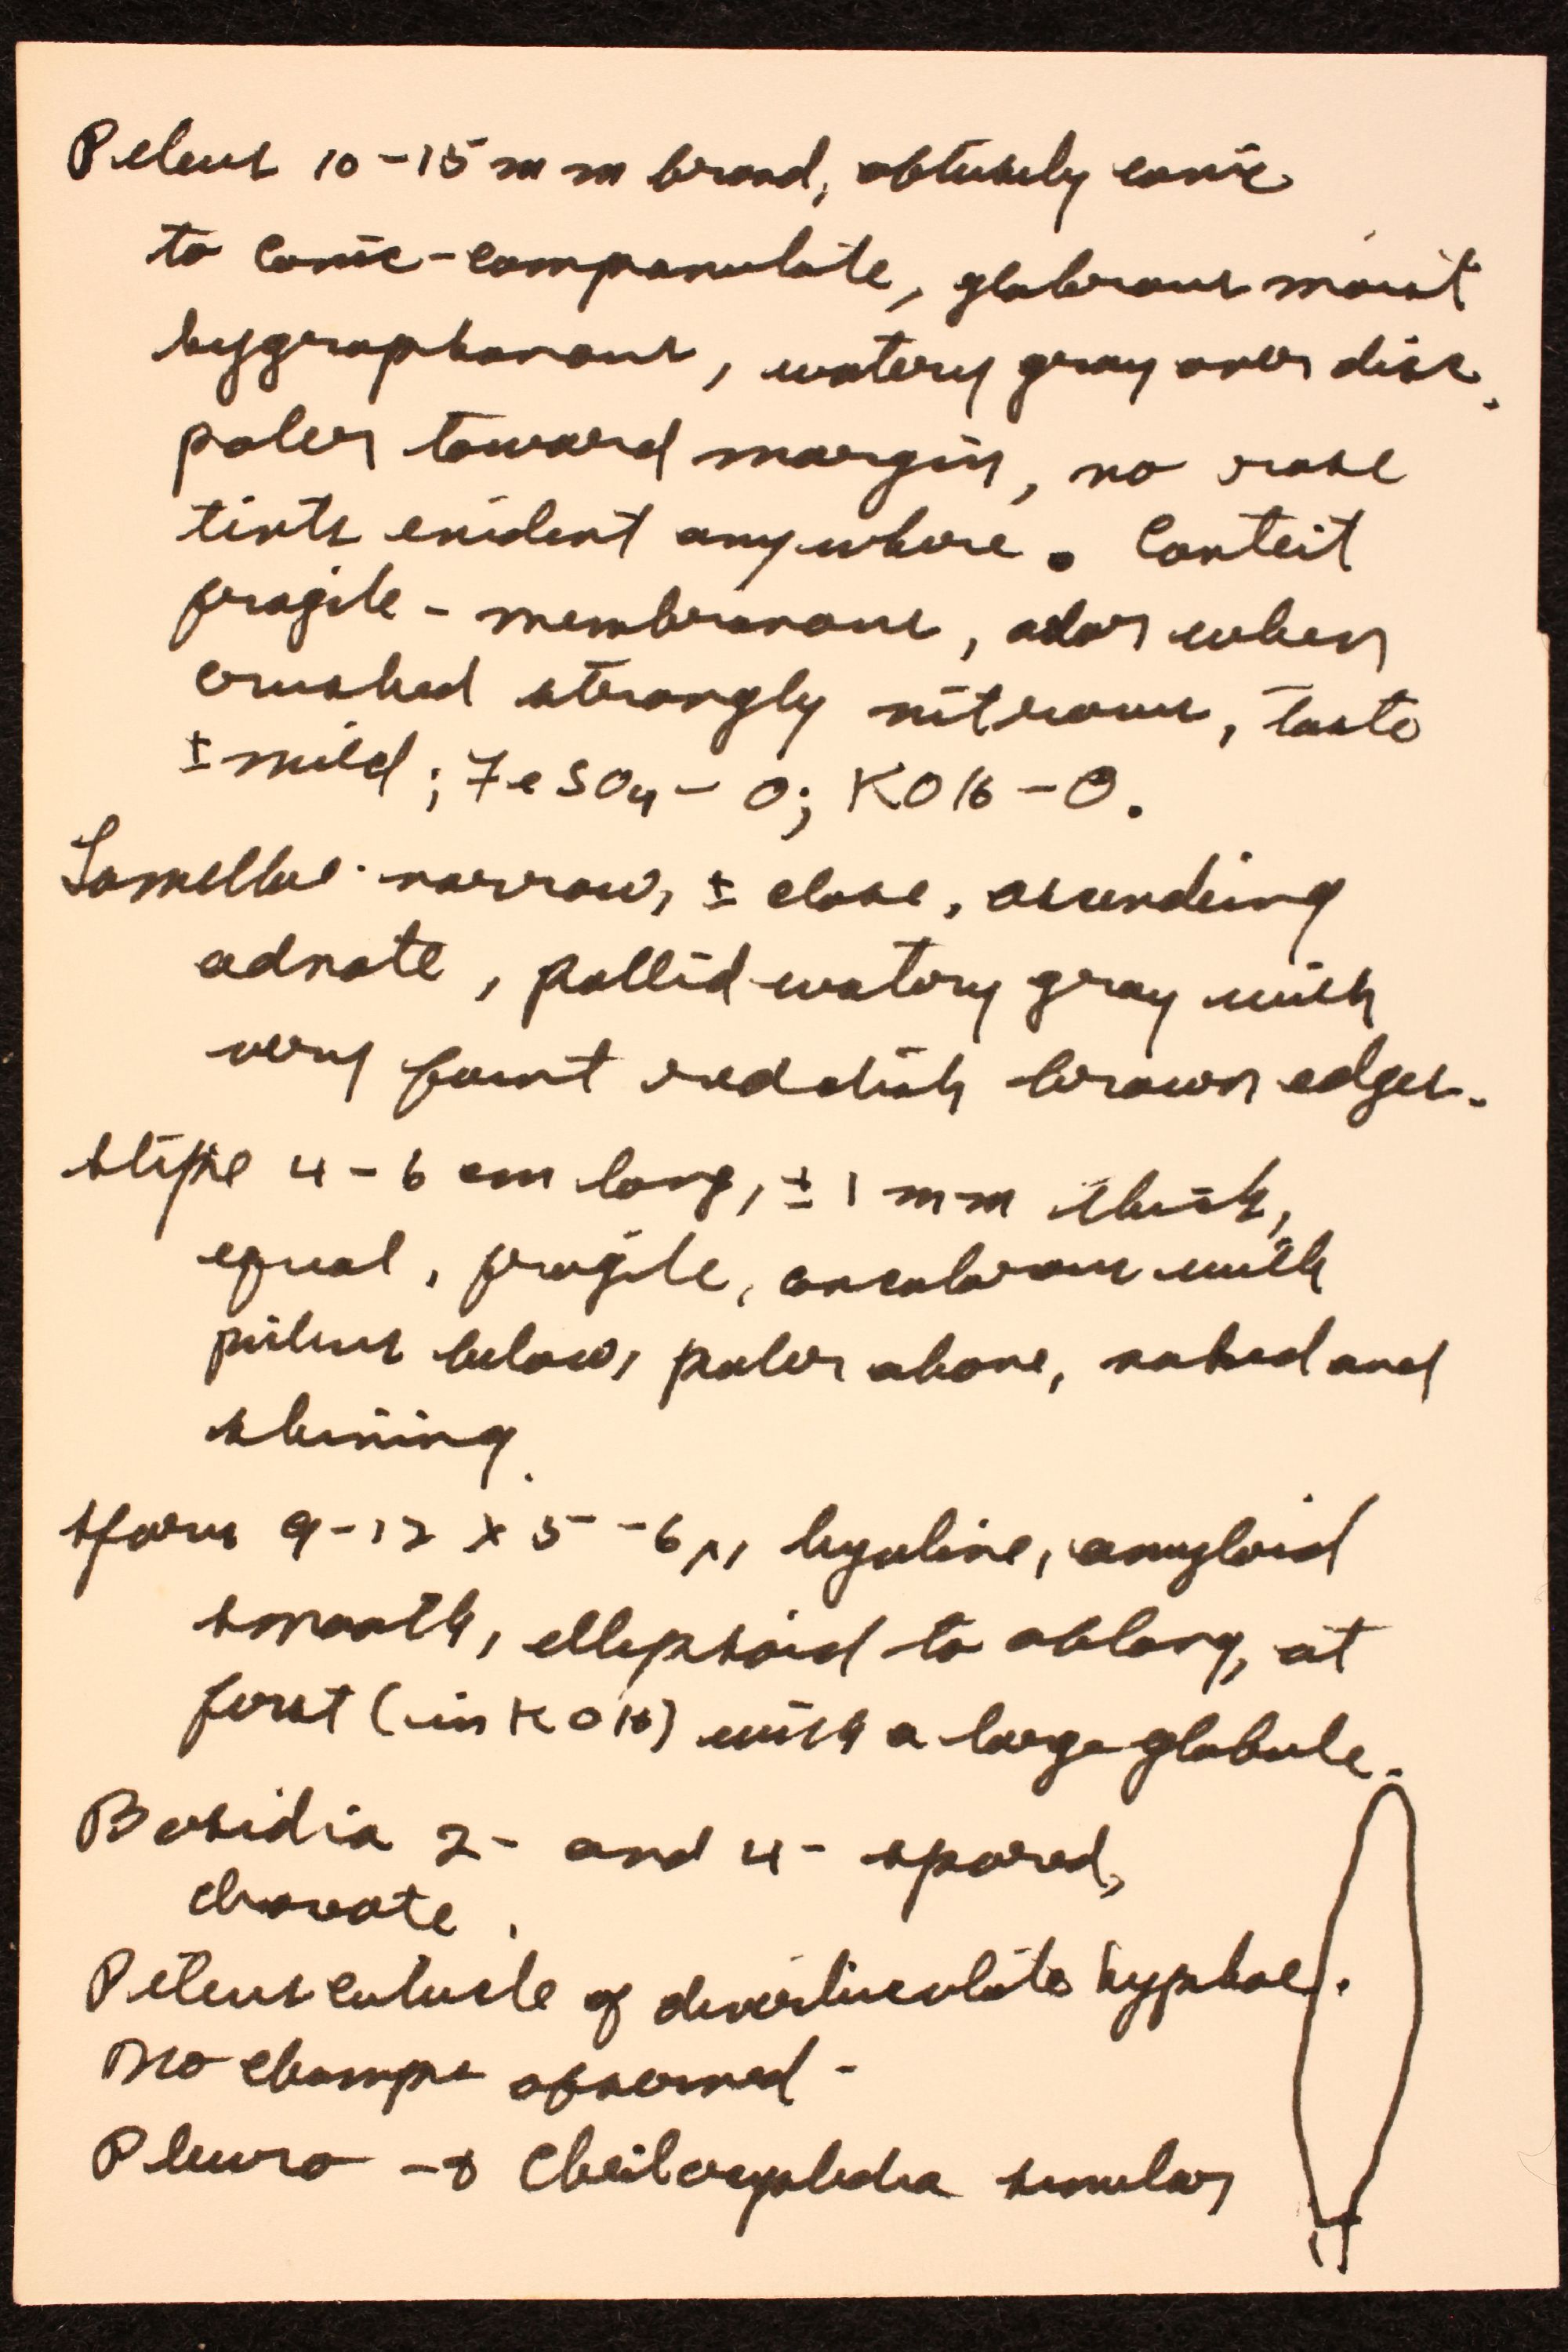 Pileus 10-15 mm broad, obtusely conic
to conic-campanulate, glabrous moist
hygrophanous, watery gray over disc,
paler toward margin, no rose
tints evident anywhere. Context
fragile - membranous, odor when
crushed strongly nitrous, taste
± mild; FeSO4 - O; KOH - O.
Lamellae narrow, ± close, ascending
adnate, pallid watery gray with
very faint reddish brown edges.
Stipe 4-6 cm long, ± 1 mm thick,
equal, fragile, concolorous with
pileus below, paler above, naked and
shining.
Spores 9-12 x 5-6 µ, hyaline, amyloid
smooth, ellipsoid to oblong, at
first (in KOH) with a large globule.
Basidia 2- and 4- spored,
clavate.
Pileus cuticle of diverticulate hyphae.
No clamps observed -
Pleuro - & Cheilocystidia similar